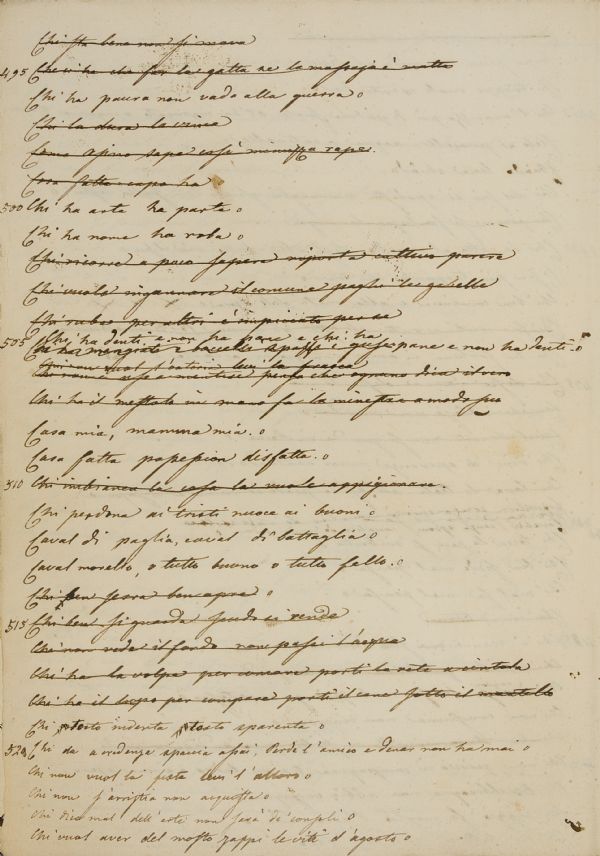 Chi sta bene non si mova
495 Che vi ha che far la gatta se la massaja è matta
Chi ha paura non vada alla guerra
Chi la dura la vince
Come asino sape così minuzza rape.
Cosa fatta capo ha
500 Chi ha arte ha parte
Chi ha nome ha roba
Chi ricorre a poco sapere riporta cattivo parere
Chi vuole ingannare il comune paghi le gabelle
Chi ruba per altri è impiccato per se
Chi ha denti e non ha pane e chi ha
505 pane e non ha denti.
Chi non vuol
Chi non è uso a mentire pensa che ognuno dica il vero
Chi ha il mestolo in mano fa la minestra a modo suo
Casa mia, mamma mia.
Casa fatta possession disfatta.
510 Chi imbianca la casa la vuole appigionare.
Chi perdona ai tristi nuoce ai buoni
Caval di paglia, caval di battaglia
Caval morello, o tutto buono o tutto fello.
Chi ben serra ben apre
515 Chi ben si guarda scudo si rende
Chi non vede il fondo non passi l'acqua
Chi ha la volpe per comare porti la rete a cintola
Chi ha il lupo per compare porti il cane sotto il mantello
Chi tosto indenta tosto sparenta
520 Chi da a credenza spaccia assai, Perde l'amico e denar non ha mai
Chi non vuol la festa levi l'alloro
Chi non s'arrischia non acquista
Chi dice mal dell'arte non sarà de' consoli
Chi vuol aver del mosto zappi le viti d'agosto